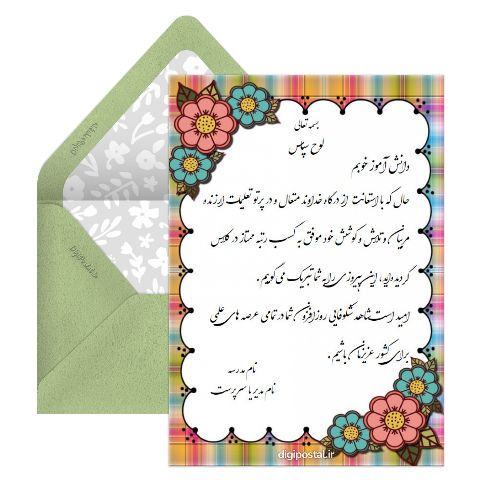 بسمه تعالی
لوح سپاس
دانش آموز خوبم
حال که با استعانت از درگاه خداوند متعال و در پرتو تعلیمات ارزنده
مربیان و تلاش و کوشش خود موفق به کسب رتبه ممتاز در کلاس
گردیده اید، این پیروزی را به شما تبریک می گویم.
امید است شاهد شکوفایی روز افزون شما در تمامی عرصه های علمی
برای کشور عزیزمان باشیم.
نام مدرسه
نام مدیر یا سرپرست
digipostal.ir
DigiPostal.ir
DigiPostal.ir